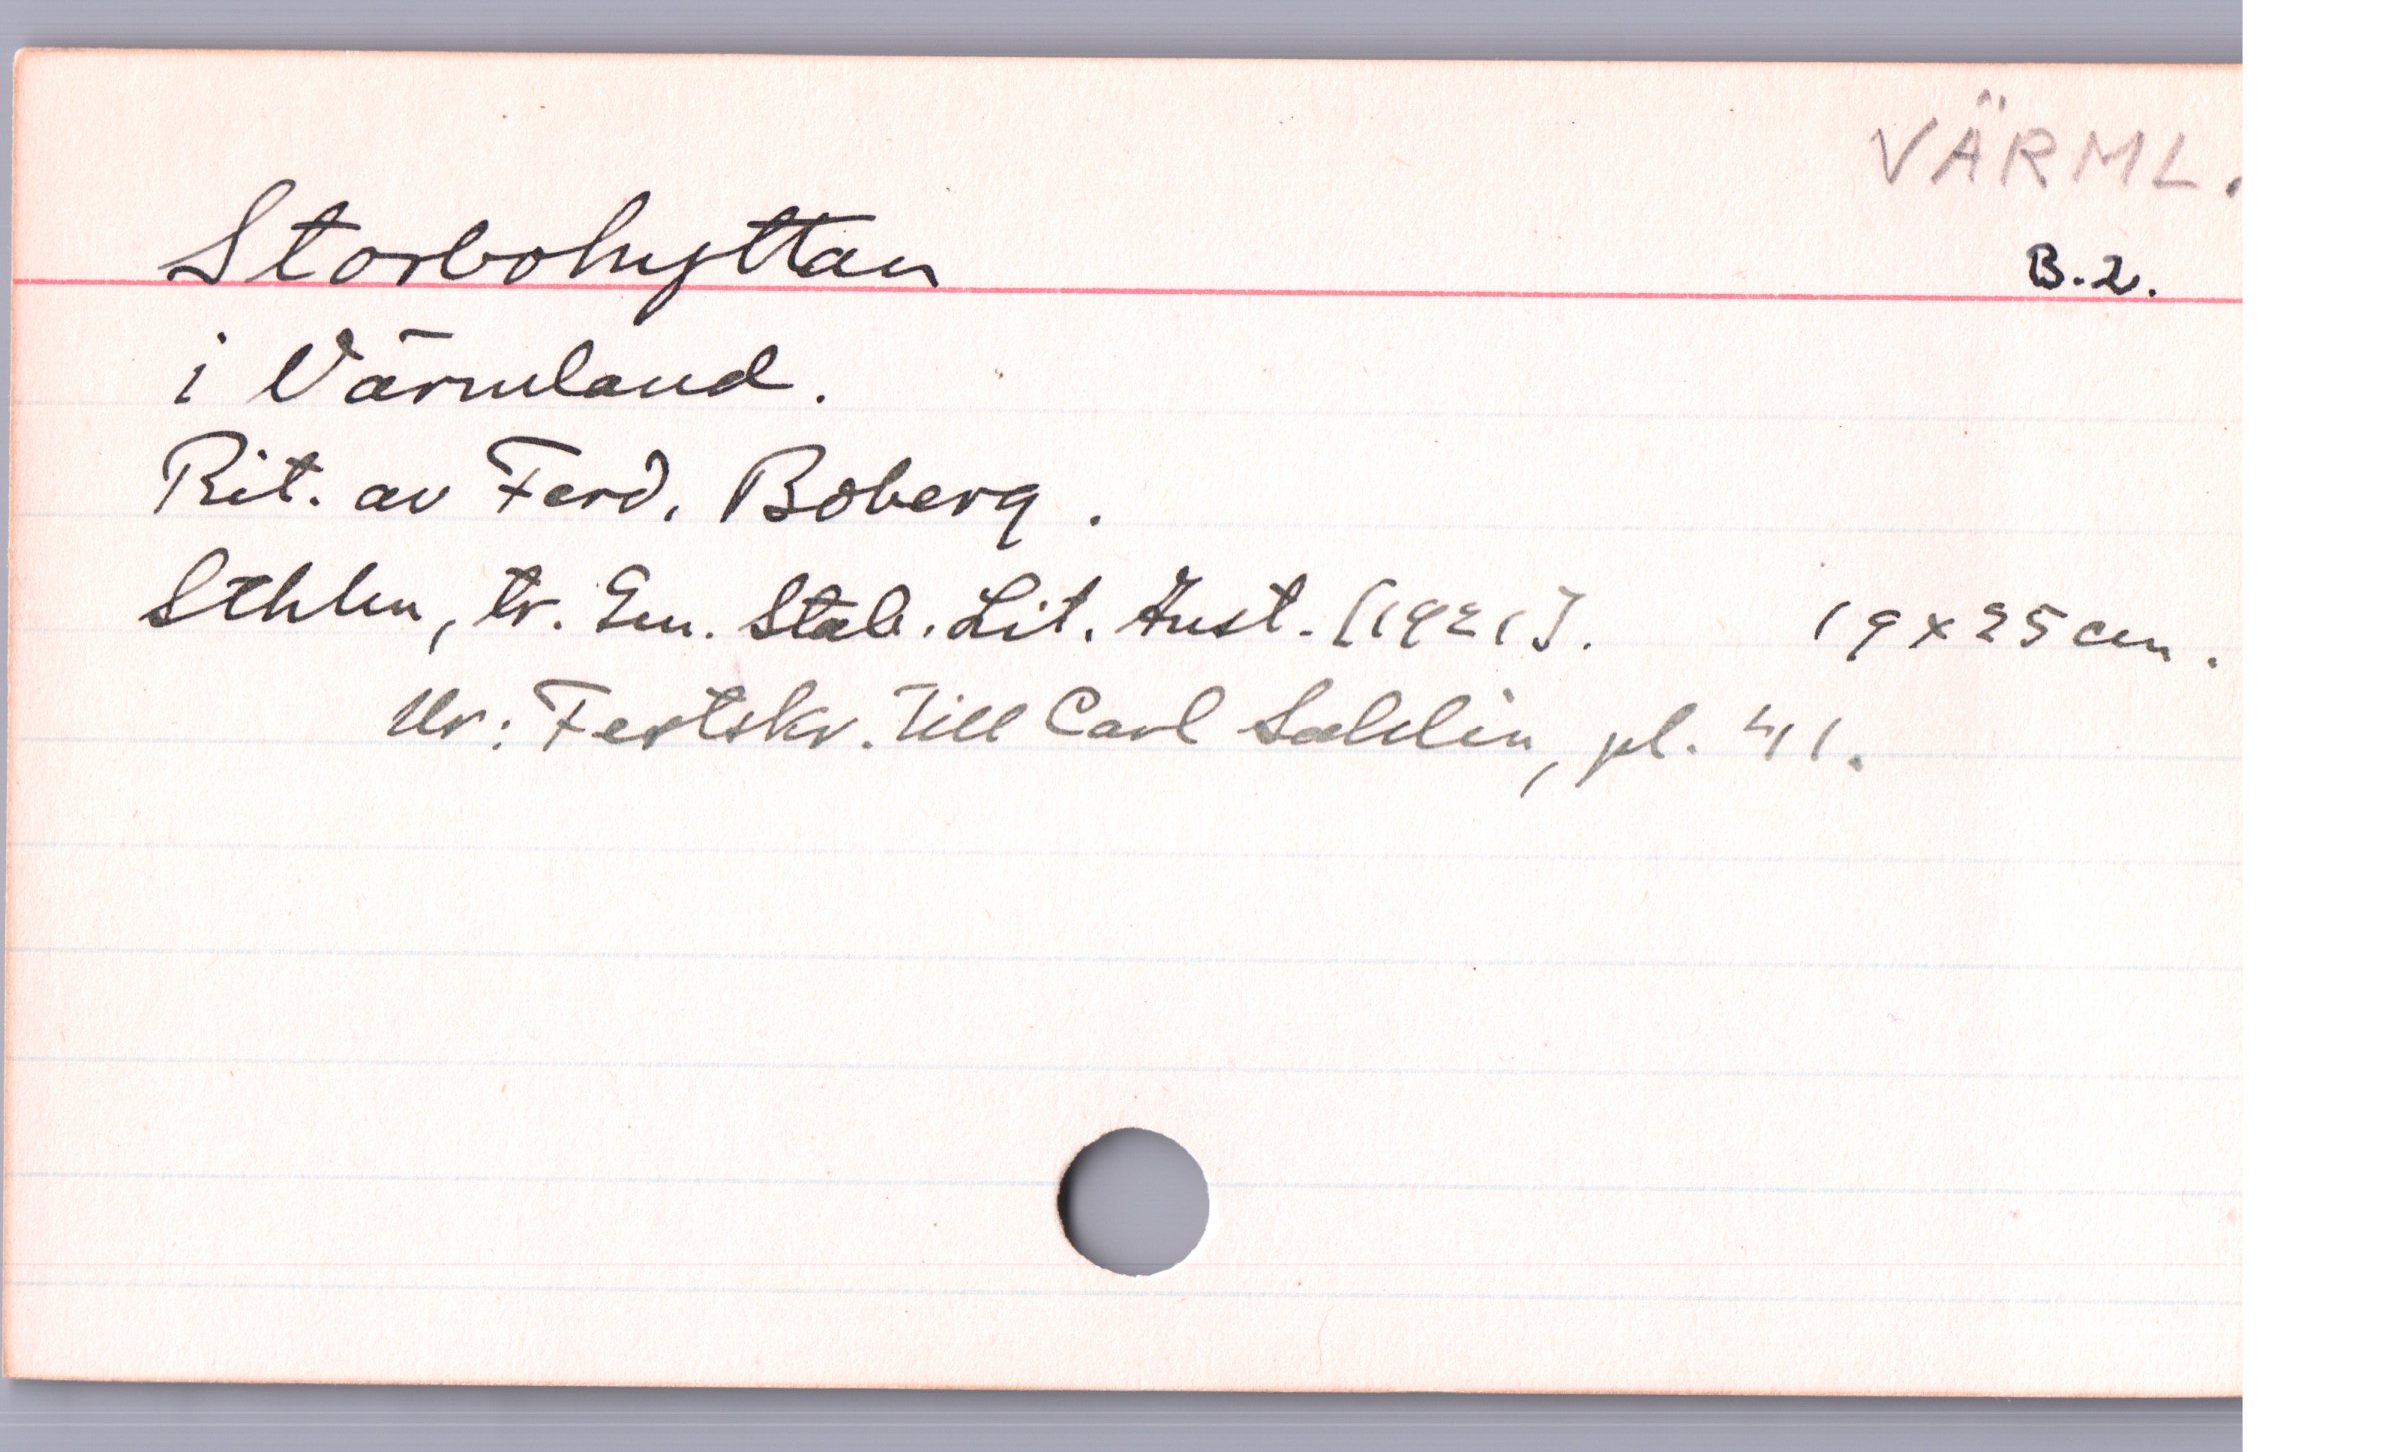 VÄRML.
Storbohyttan
B.2.
i Värmland.
Rit. av Ferd. Boberg.
Sthlm, tr. Gen. Stab. Lit. Anst. [1921]. 19x25 cm.
Ur: Festskr. till Carl Sahlin, pl. 41.